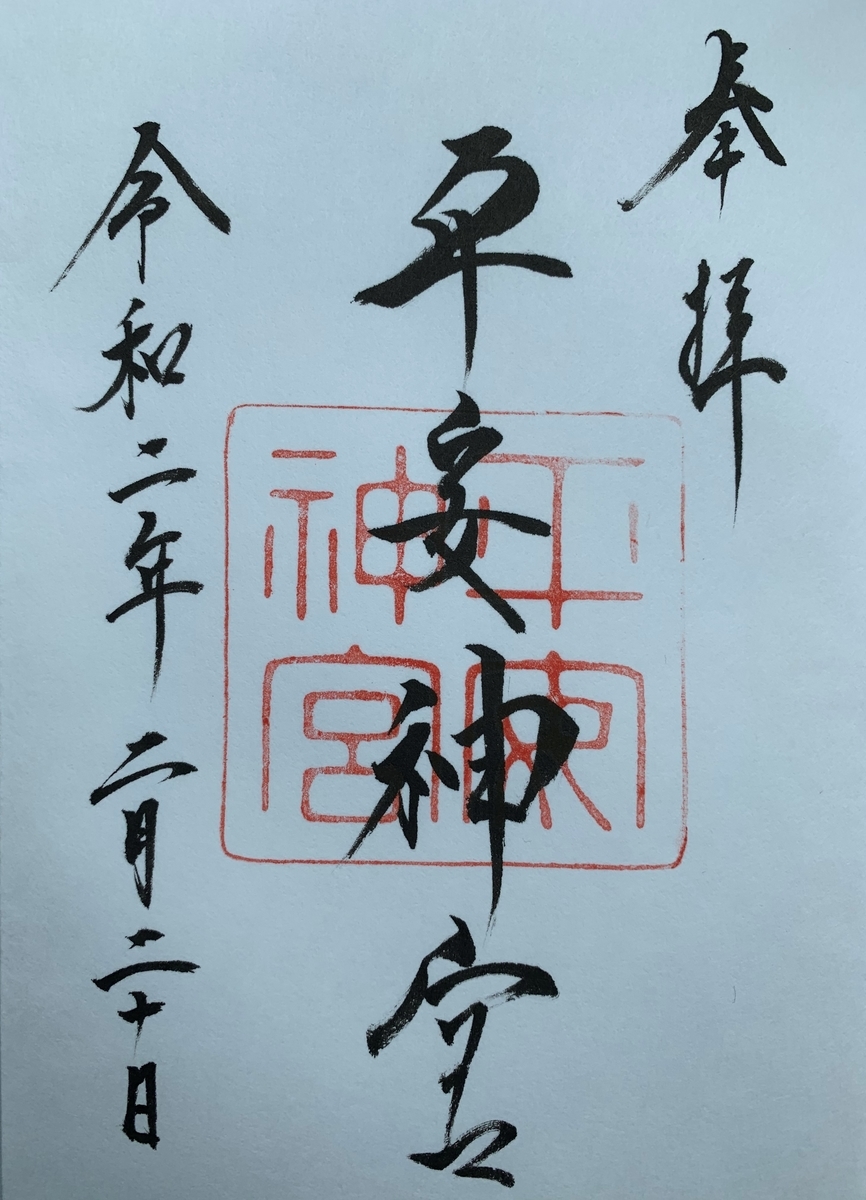 奉拝
平安神宮
令和二年 二月二十日
平安神宮